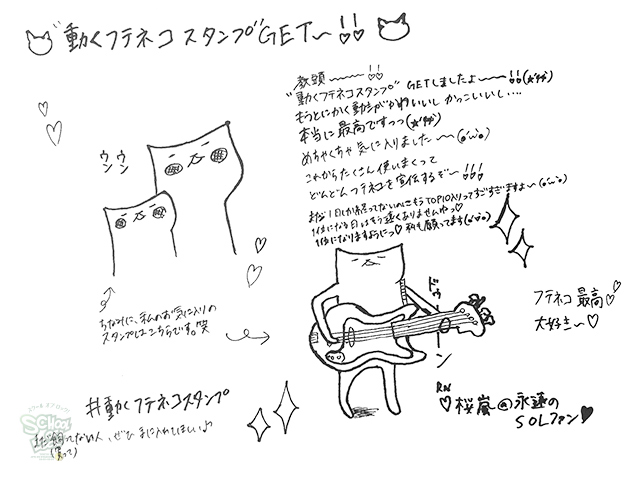 "動くフテネコ スタンプ"GET〜!!
教頭〜〜〜!!
"動くフテネコスタンプ" GETしましたよ〜〜〜!!
もうとにかく動きがかわいいし かっこいいし…
本当に最高ですっっ
めちゃくちゃ気に入りました〜
これからたくさん使いまくって
どんどんフテネコを宣伝するぞ〜!!!
まだ1日しか経ってないのにもうTOP10入りってすごすぎますよ〜
1位になる日はもう遠くありませんねっ♡
1位になりますようにっ♡私も願ってます
ウンウン
ちなみに、私のお気に入りの
スタンプはこちらです。笑
ドゥーン
フテネコ 最高♡
大好き〜♡
#動くフテネコスタンプ
まだ飼ってない人、ぜひ手に入れてほしい♪
(買って)
RN
♡桜嵐@永遠の
SOLファン♥
SCHOOL